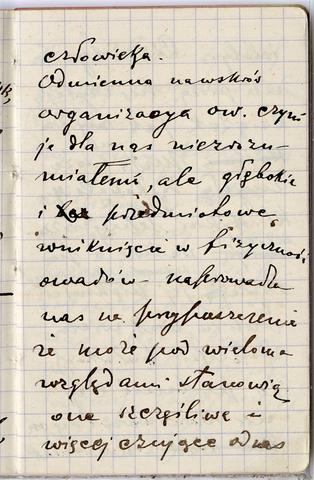 człowieka.
Odmienna nawskróś
organizacya ow. czyni
je dla nas niezrozu-
miałemi, ale głębokie
i przedmiotowe
wniknięcie w fizyczność
owadów naprowadza
nas na przypuszczenie
że może pod wieloma
względami stanowią
one szczęśliwe i
więcej czujące od nas